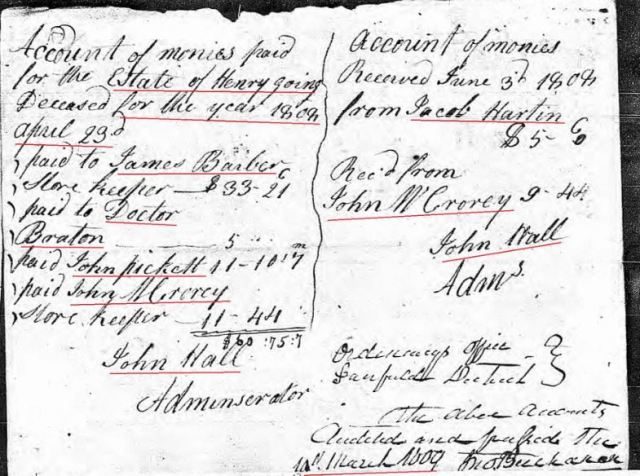 Account of monies paid
for the Estate of Henry going
Deceased for the year 1808
april 23d
paid to James Barber
Store keeper — $33-21 c
paid to Doctor
Braton — 5
paid John pickett 11-10 m 7
paid John McCrorey
Store keeper — 11-44
$60:75:7
John Hall
Adminserator
account of monies
Received June 3d 1808
from Jacob Hartin
$5-
Rec'd from
John McCrorey 9-44
John Hall
Adms.
Ordinarys office
District
The above Accounts
Audited and the
March 1809